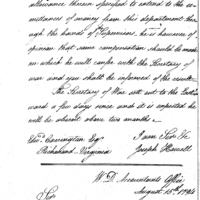 allowance therein specified to extend to the re-
mittances of money from this department thro-
ugh the hands of Supervisors, he is however of
opinion that some compensation should be made
on which he will confer with the Secretary of
war and you shall be informed of the result
The Secretary of War set out to the East-
ward a few days since and it is expected he
will be absent above two months.
Edwd Carrington Esqr
Richmond Virginia
I am Sir &c
Joseph Howell
W. D. Accountants Office
August 15th 1794
Sir